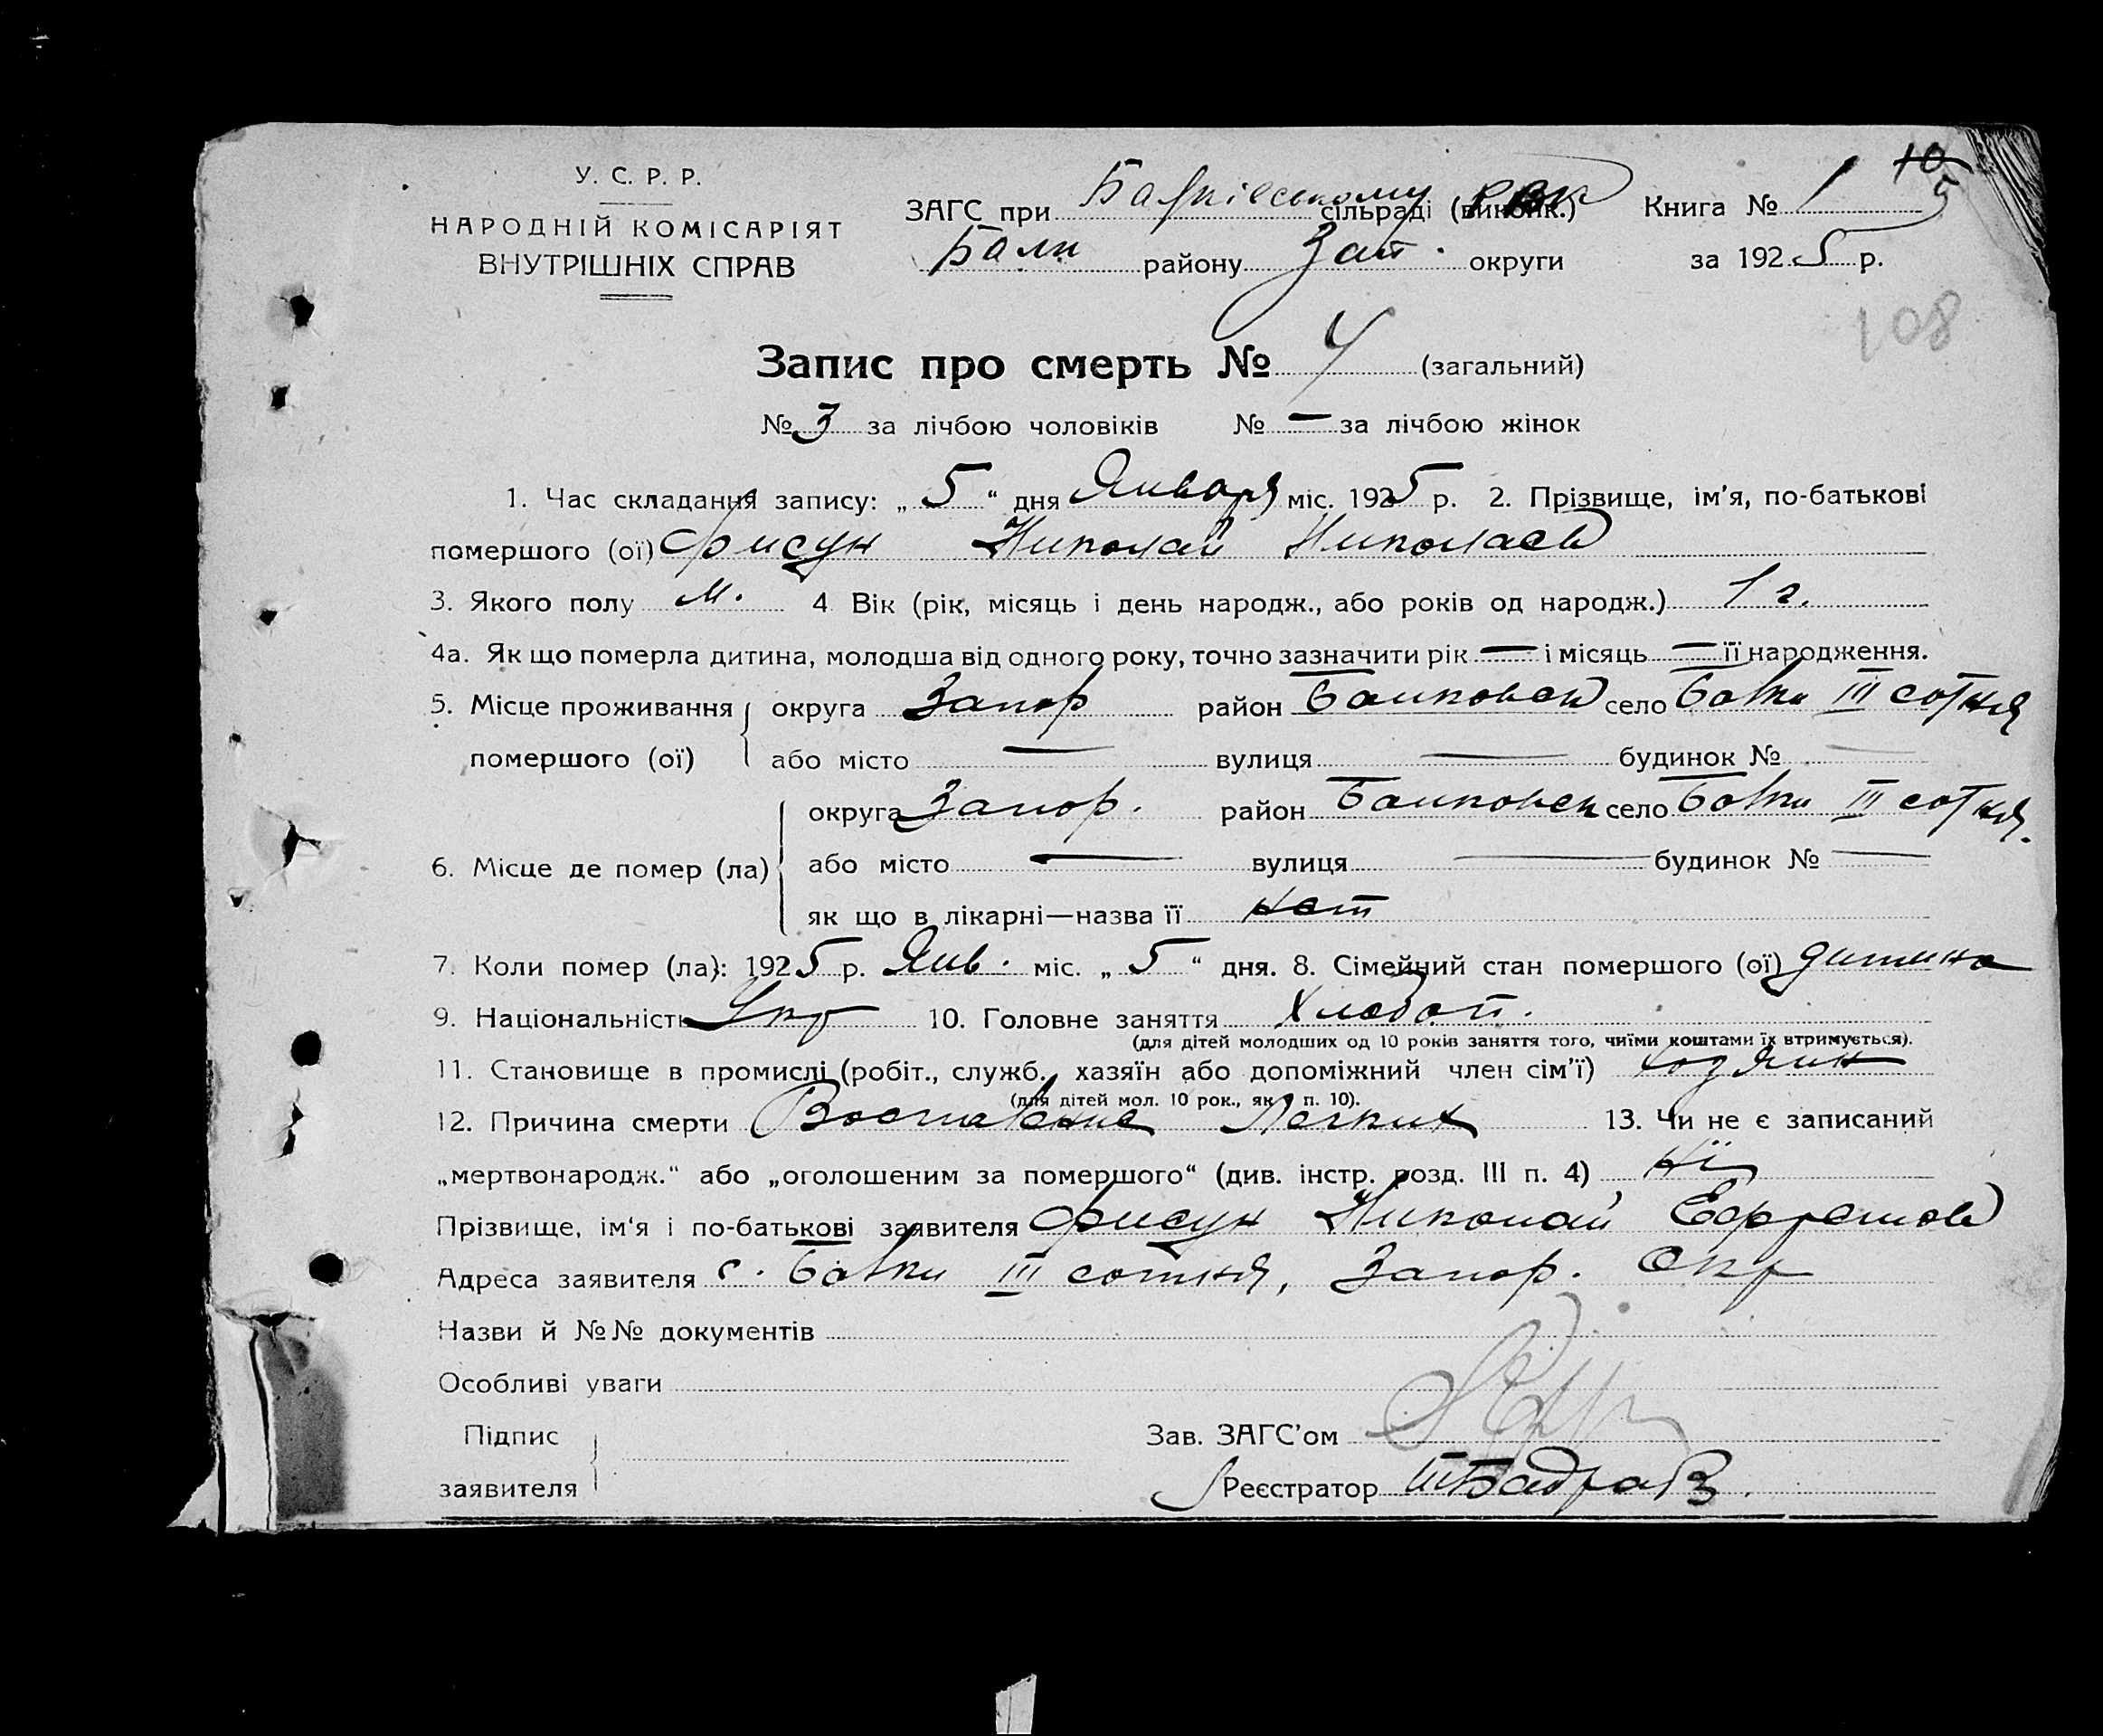 10
5
У. С. Р. Р.
НАРОДНІЙ КОМІСАРІЯТ
ВНУТРІШНІХ СПРАВ
ЗАГС при Балківському сільраді (викопк.) РВК Книга № 1
Балк району Зап. округи за 1925 р.
108
Запис про смерть № 4 (загальний)
№ 3 за лічбою чоловіків № — за лічбою жінок
1. Час складання запису: „5“ дня Января міс. 1925 р. 2. Прізвище, ім'я, по-батькові
помершого (ої) Фисун Николай Николаев
3. Якого полу м. 4 Вік (рік, місяць і день народж., або років од народж.) 1 г.
4а. Як що померла дитина, молодша від одного року, точно зазначити рік — і місяць — її народження.
5. Місце проживання округа Запор район Балковск село Балки III сотня
помершого (ої) або місто — вулиця — будинок № —
округа Запор. район Балковск село Балки III сотня.
6. Місце де помер (ла) або місто — вулиця — будинок № —
як що в лікарні—назва її нет
7. Коли помер (ла): 1925 р. Янв. міс. „5“ дня. 8. Сімейний стан помершого (ої) дитина
9. Національність Укр 10. Головне заняття Хлебоп.
(для дітей молодших од 10 років заняття того, чиїми коштами їх втримується).
11. Становище в промислі (робіт., служб., хазяїн або допоміжний член сім'ї) хозяин
(для дітей мол. 10 рок., як п. 10).
12. Причина смерти Воспаление Легких 13. Чи не є записаний
„мертвонародж.“ або „оголошеним за помершого“ (див. інстр. розд. III п. 4) Ні
Прізвище, ім'я і по-батькові заявителя Фисун Николай Ефремов
Адреса заявителя с. Балки III сотня, Запор. Окр
Назви й №№ документів
Особливі уваги
Підпис
заявителя
Зав. ЗАГС'ом
Реєстратор